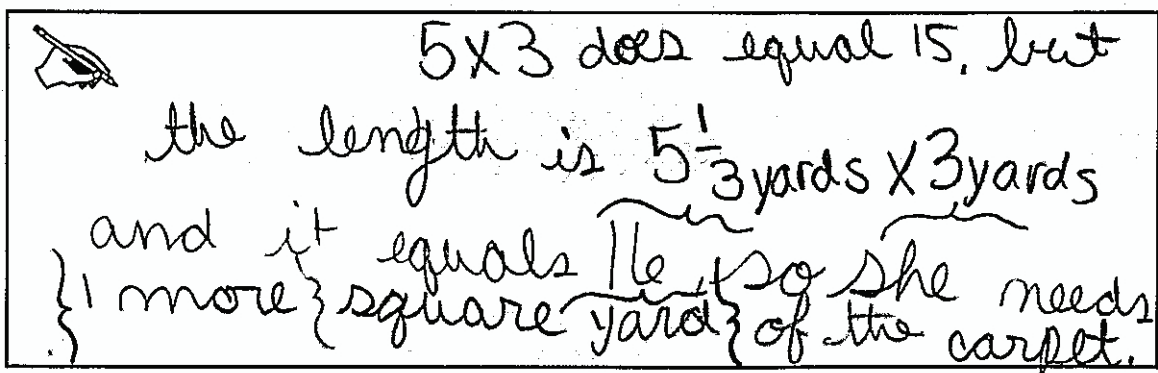 5x3 does equal 15, but
the length is 5 1/3 yards x 3 yards
and it equals 16, so she needs
{1 more} square yard} of the carpet.